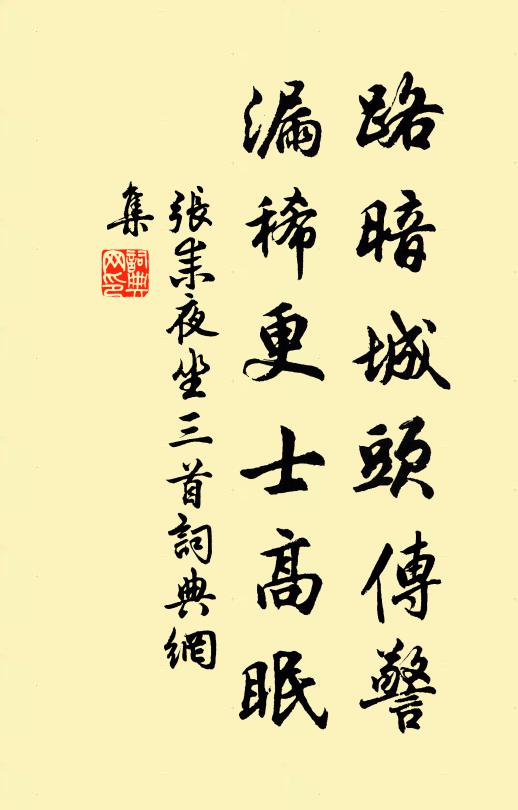 路暗城頭傳警
漏稀更士高眠
張耒夜坐三首詞典網
集
詞典
网印